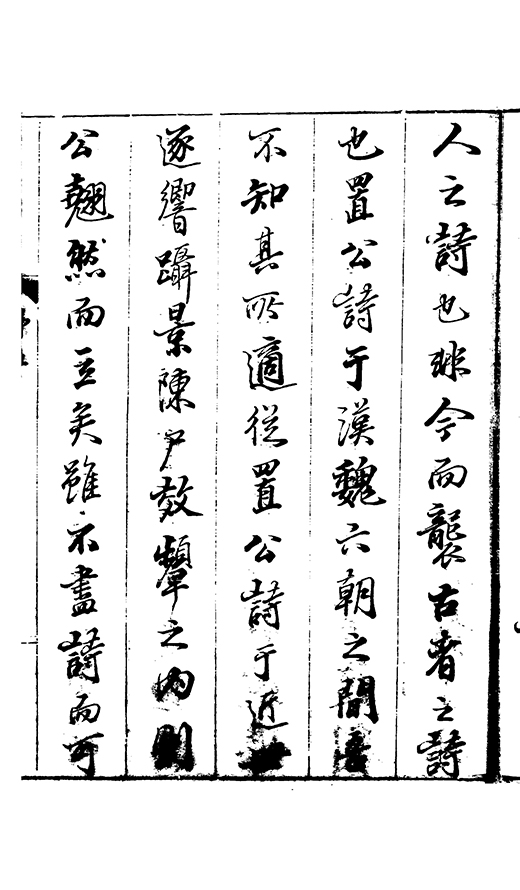 人之詩也非今而襲古者之詩
也置公詩于漢魏六朝之間吾
不知其所適從置公詩于近
逐響躡景陳尸效顰之内則
公翹然而立矣雖不盡詩而可